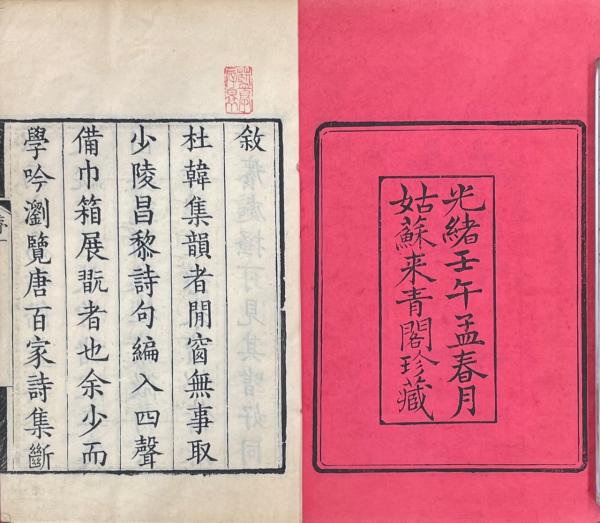 光緒壬午孟春月
姑蘇来青閣珍藏
敘
杜韓集韻者閒窗無事取
少陵昌黎詩句編入四聲
備巾箱展翫者也余少而
學吟瀏覽唐百家詩集斷